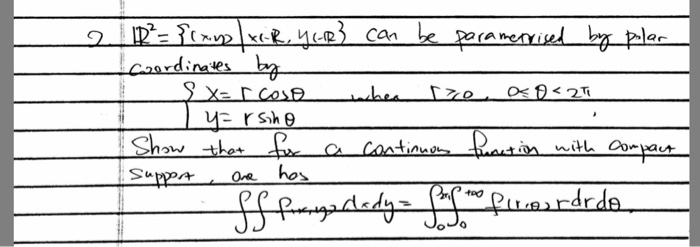 2. ℝ² = {(x,y) | x∈ℝ, y∈ℝ} can be parametrised by polar
coordinates by
{ x = r cosθ when r ≥ 0, 0 ≤ θ < 2π
y = r sinθ
Show that for a continuous function with compact
support, one has
∬ f(x,y) dxdy = ∫₀^2π ∫₀^+∞ f(r,θ) r dr dθ.